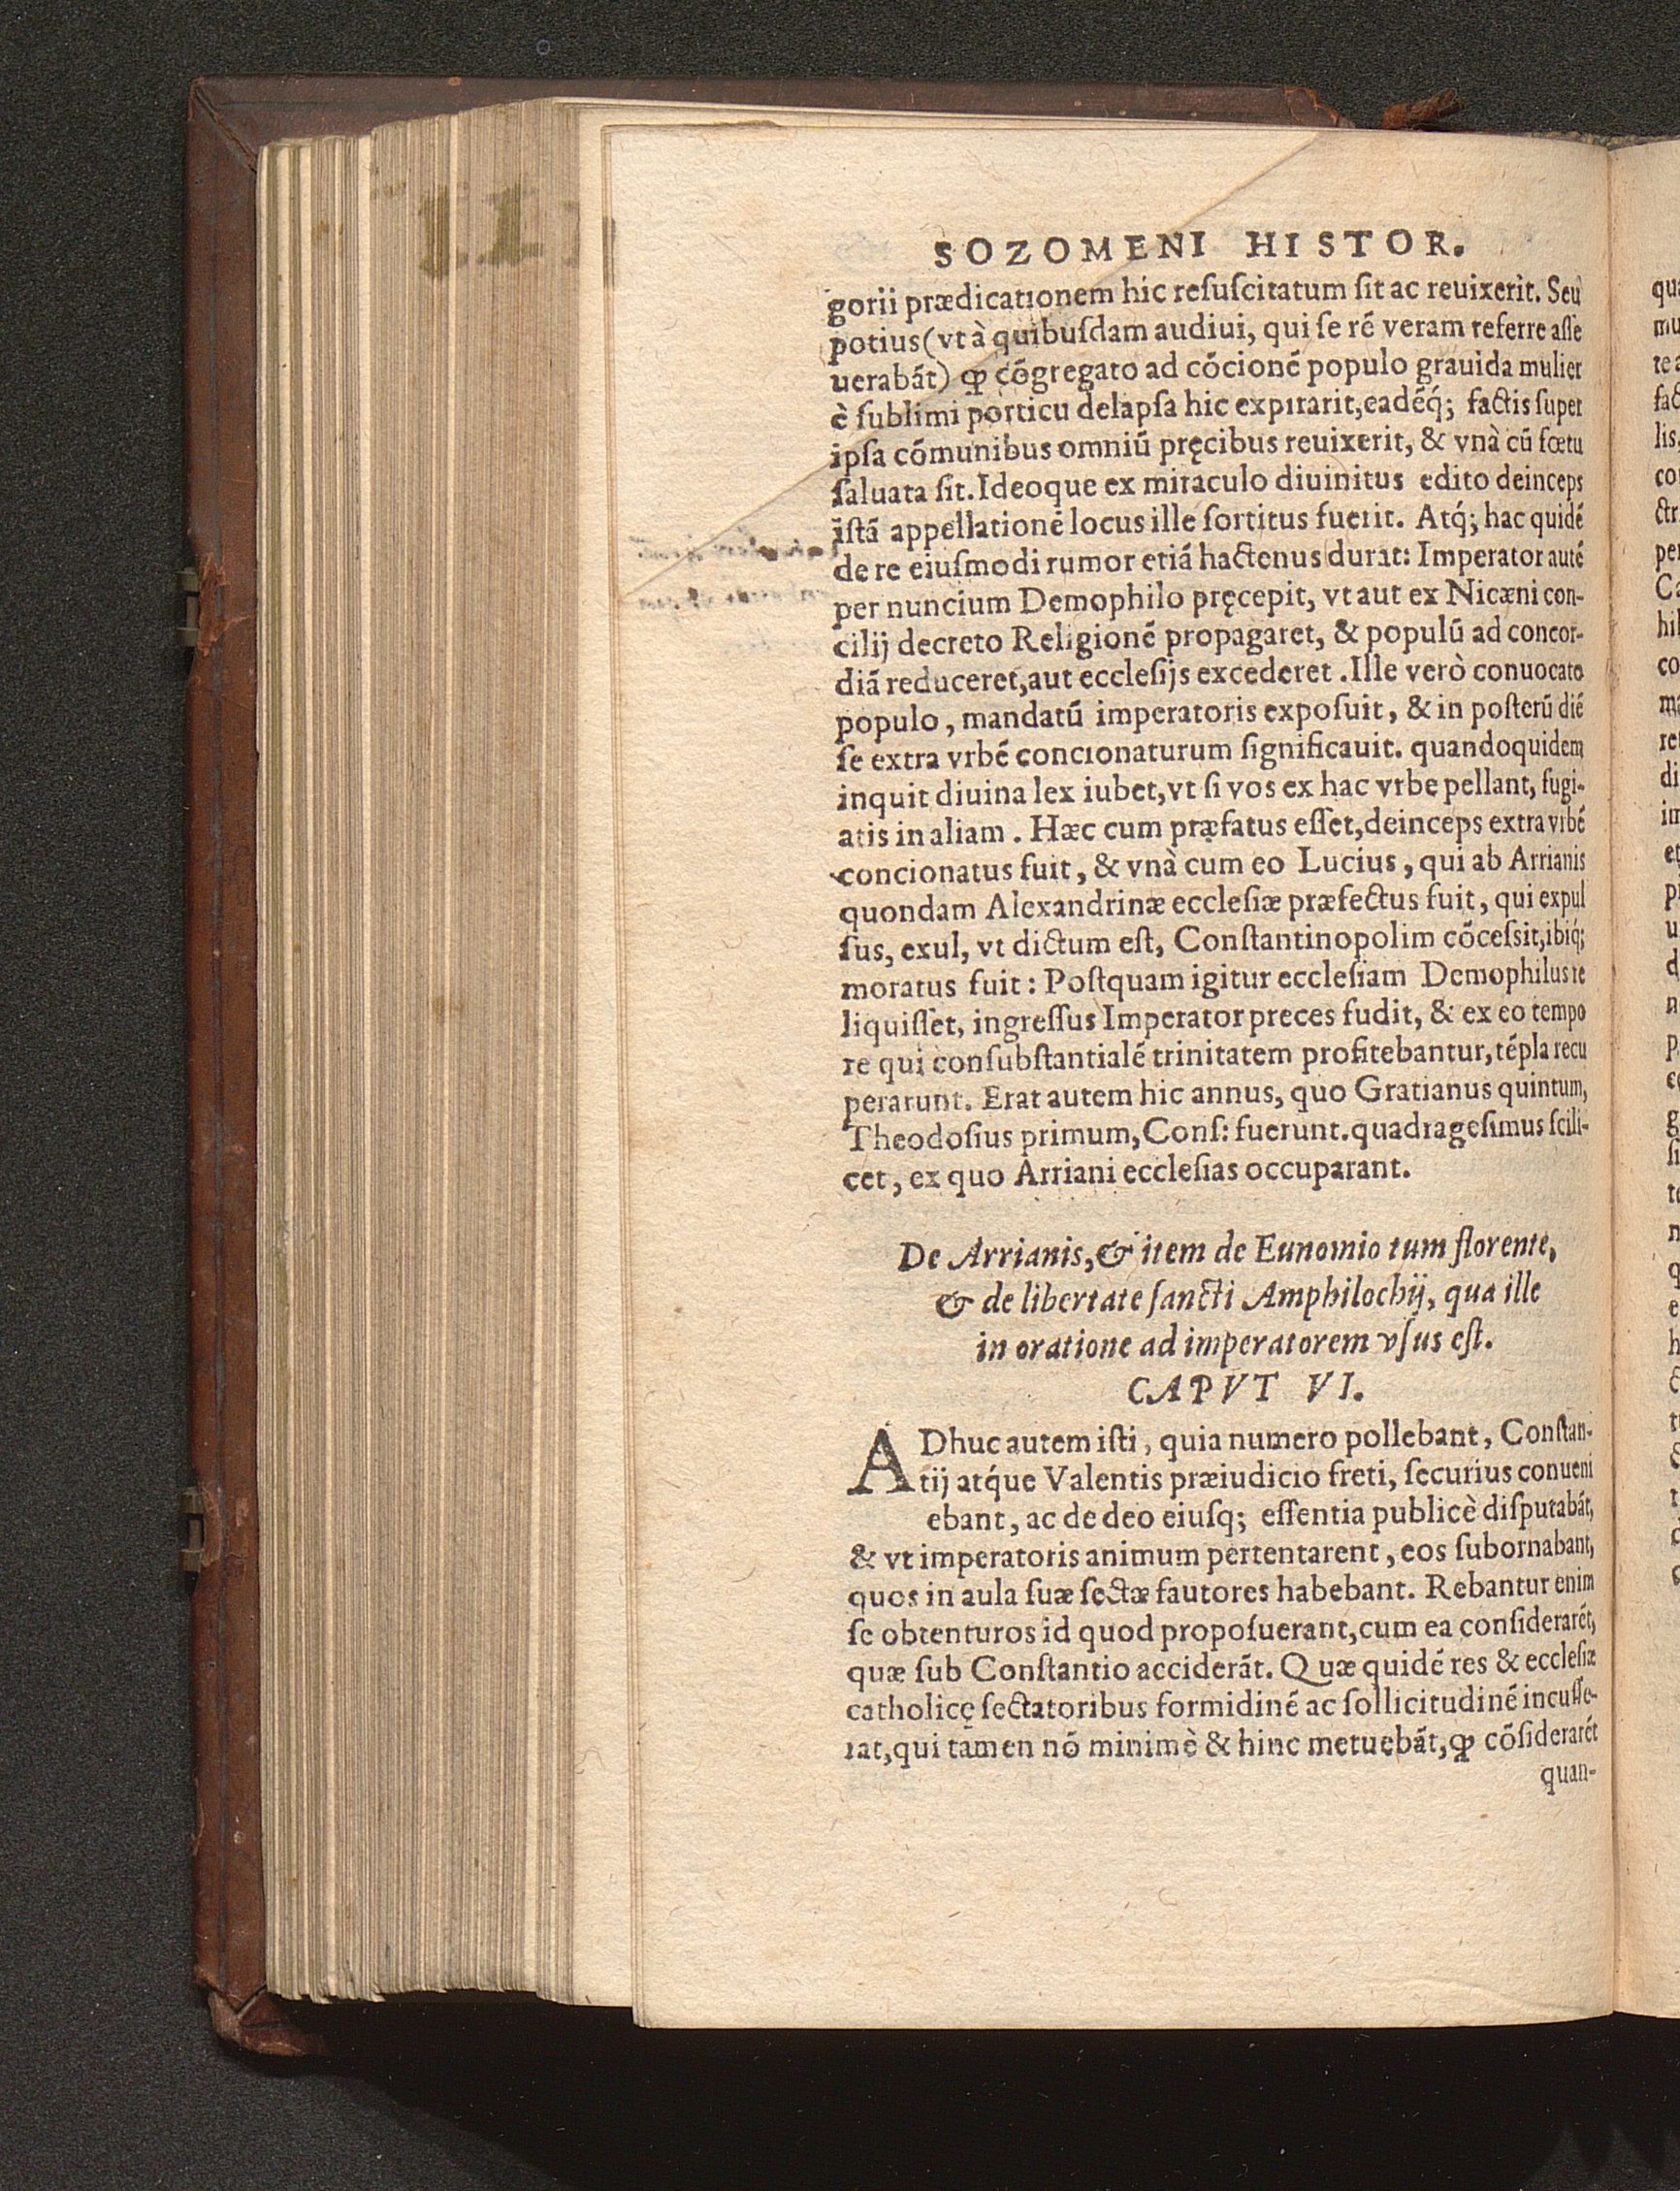 SOZOMENI HISTOR.
gorii prædicationem hic reſuſcitatum ſit ac reuixerit. Seu
potius (vt à quibuſdam audiui, qui ſe rē veram referre aſſe
uerabāt) ꝙ cōgregato ad cōcionē populo grauida mulier
è ſublimi porticu delapſa hic expirarit, eadēq́; factis ſuper
ipſa cōmunibus omniū pręcibus reuixerit, & vnà cū fœtu
ſaluata ſit. Ideoque ex miraculo diuinitus edito deinceps
iſtā appellationē locus ille ſortitus fuerit. Atq́; hac quidē
de re eiuſmodi rumor etiā hactenus durat: Imperator autē
per nuncium Demophilo pręcepit, vt aut ex Nicæni con-
cilij decreto Religionē propagaret, & populū ad concor-
diā reduceret, aut eccleſijs excederet. Ille verò conuocato
populo, mandatū imperatoris expoſuit, & in poſterū diē
ſe extra vrbē concionaturum ſignificauit. quandoquidem
inquit diuina lex iubet, vt ſi vos ex hac vrbe pellant, fugi-
atis in aliam. Hæc cum præfatus eſſet, deinceps extra vrbē
concionatus fuit, & vnà cum eo Lucius, qui ab Arrianis
quondam Alexandrinæ eccleſiæ præfectus fuit, qui expul
ſus, exul, vt dictum eſt, Conſtantinopolim cōceſsit, ibiq́;
moratus fuit: Poſtquam igitur eccleſiam Demophilus re
liquiſſet, ingreſſus Imperator preces fudit, & ex eo tempo
re qui conſubſtantialē trinitatem profitebantur, tēpla recu
perarunt. Erat autem hic annus, quo Gratianus quintum,
Theodoſius primum, Conſ: fuerunt. quadrageſimus ſcili-
cet, ex quo Arriani eccleſias occuparant.
De Arrianis, & item de Eunomio tum florente,
& de libertate ſancti Amphilochij, qua ille
in oratione ad imperatorem vſus eſt.
CAPVT VI.
ADhuc autem iſti, quia numero pollebant, Conſtan-
tij atq́ue Valentis præiudicio freti, ſecurius conueni
ebant, ac de deo eiuſq; eſſentia publicè diſputabāt,
& vt imperatoris animum pertentarent, eos ſubornabant,
quos in aula ſuæ ſectæ fautores habebant. Rebantur enim
ſe obtenturos id quod propoſuerant, cum ea conſiderarēt,
quæ ſub Conſtantio acciderāt. Quæ quidē res & eccleſiæ
catholicę ſectatoribus formidinē ac ſollicitudinē incuſſe-
rat, qui tamen nō minimè & hinc metuebāt, ꝙ cōſiderarēt
quan-